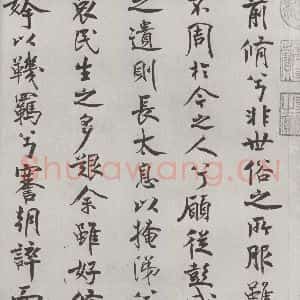 前脩兮非世俗之所服雖
不周於今之人兮願從彭
之遺則長太息以掩涕兮
哀民生之多艱余雖好脩
姱以鞿羈兮謇朝誶而
Shufawang.CN